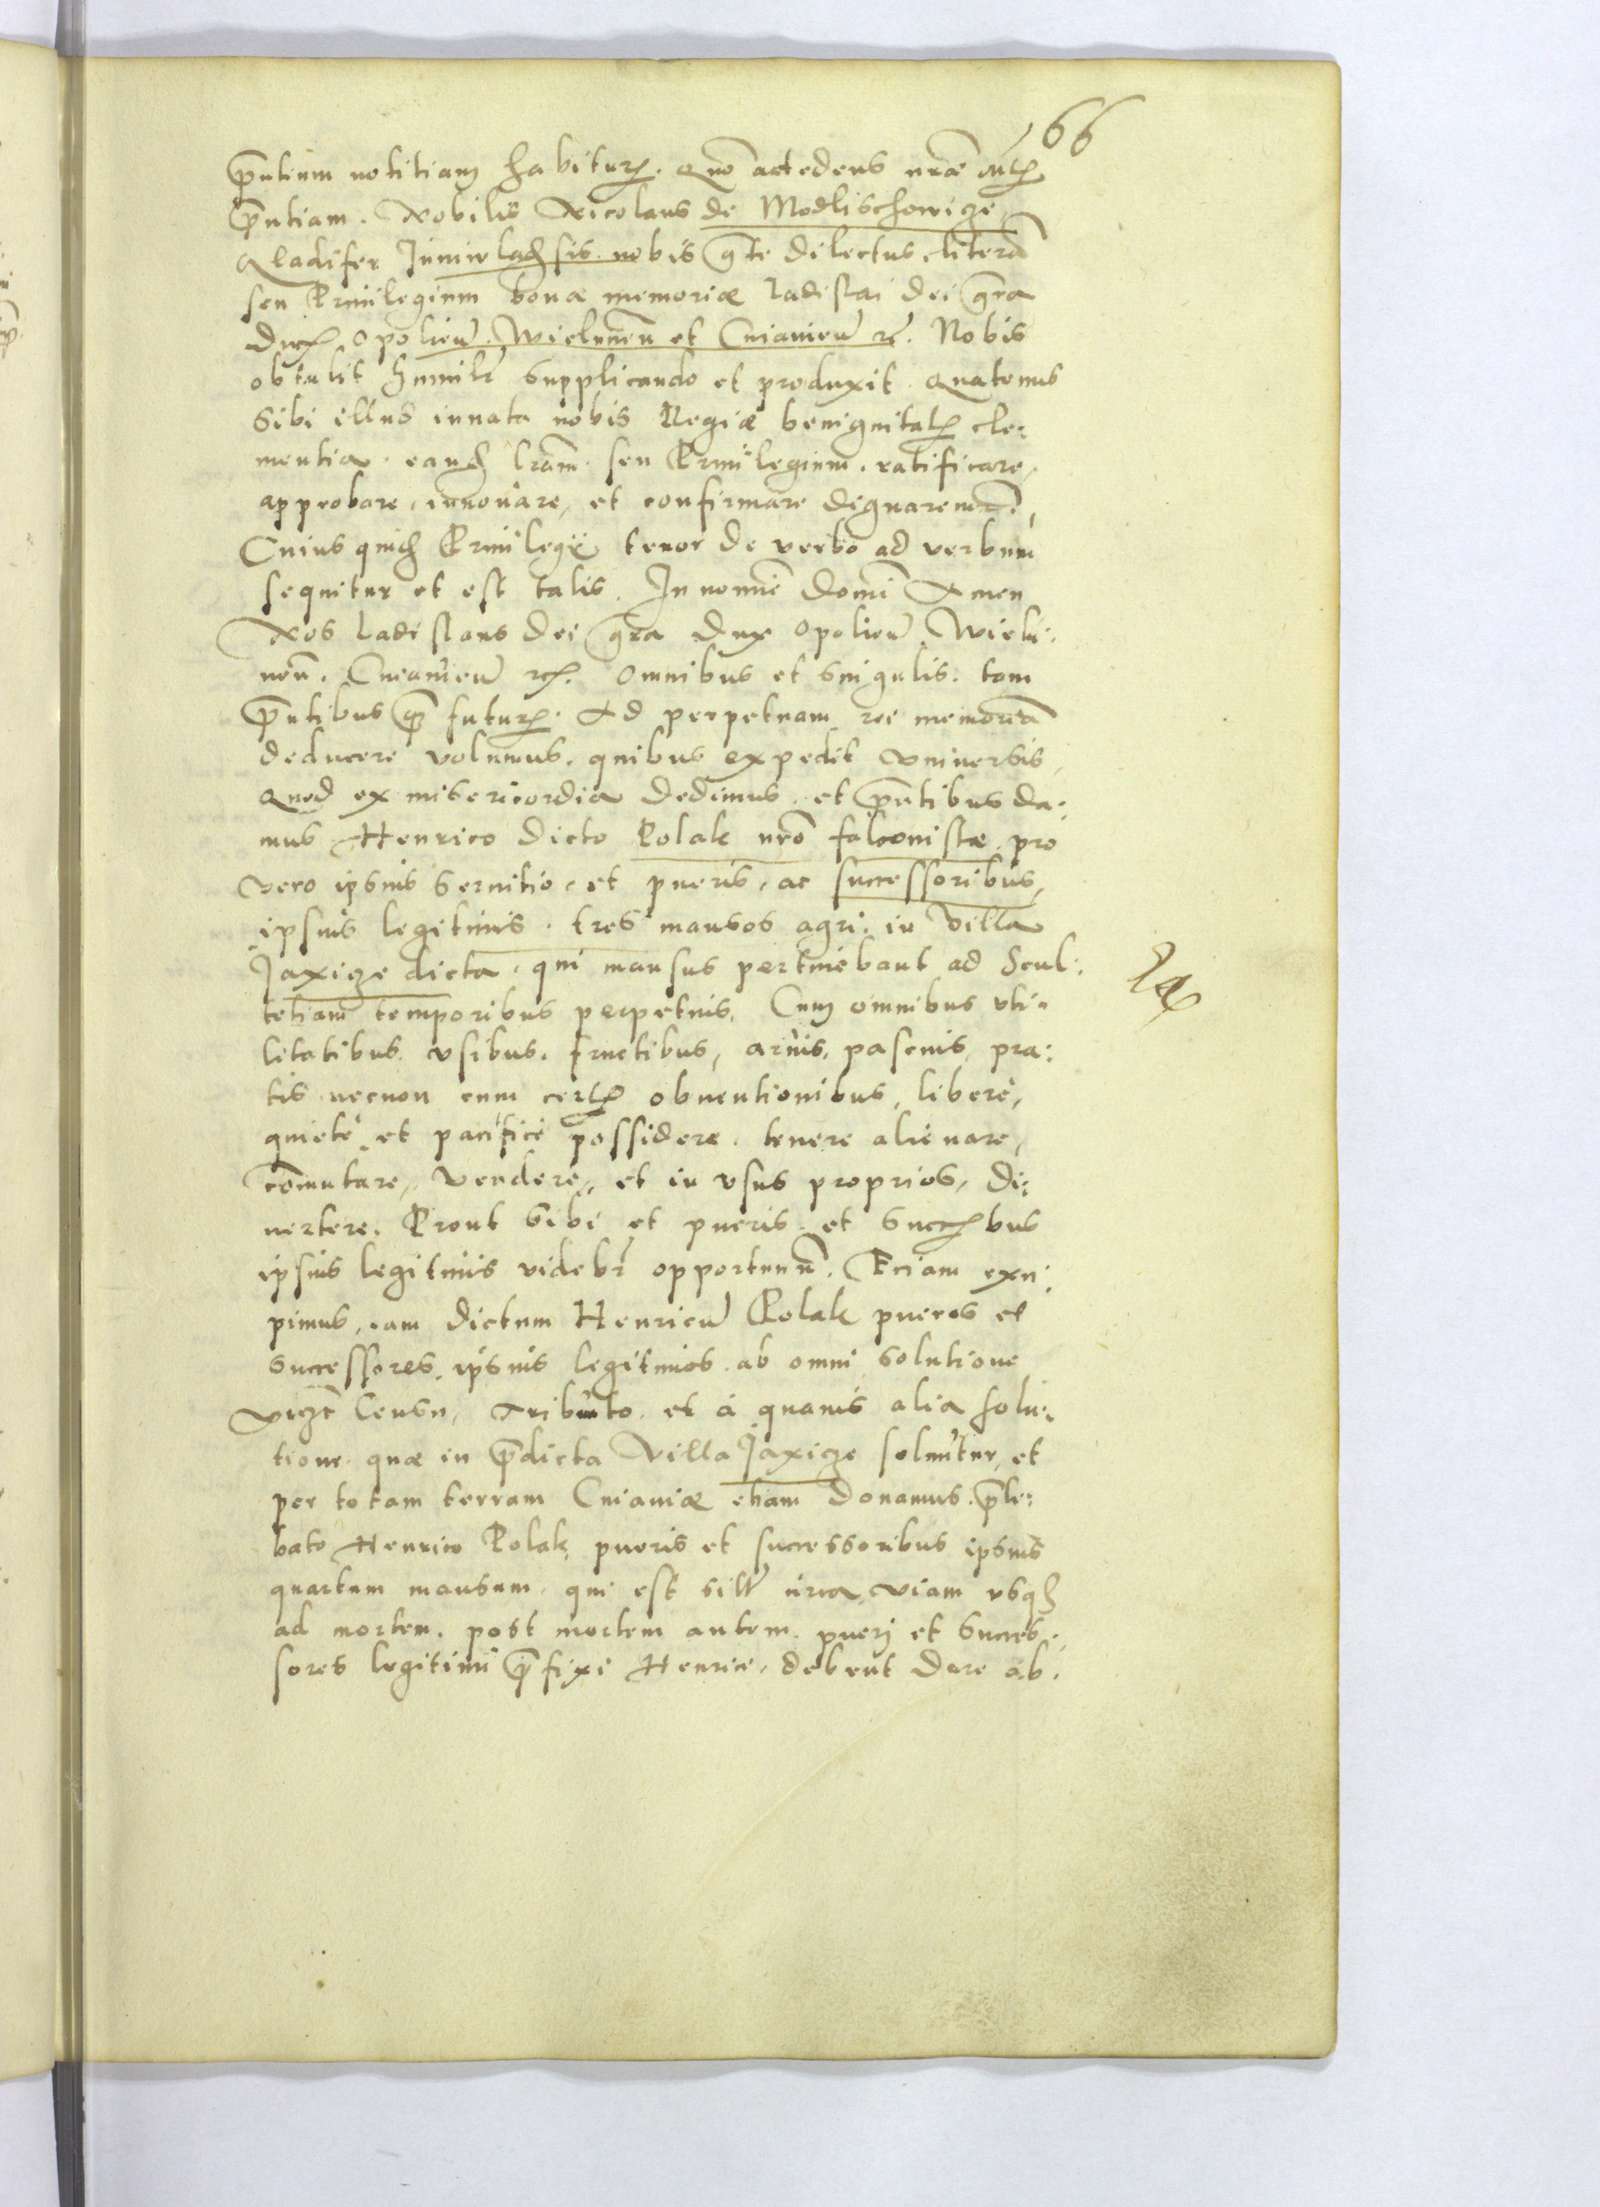 66
p̄ntium notitiam habiturꝭ. Quō accedens nr̄ae
p̄ntiam. Nobilis Nicolaus de Modlischowicze
Gladifer Junivladꝭsis nobis gr̄te dilectus, literā
seu Priuilegium bonæ memoriæ Ladislai Dei gr̄a
Ducꝭ Opolień. Wieluneń et Cuiavień rc̄. Nobis
obtulit humilr̄ supplicando et produxit. Quatenus
sibi illius innata nobis Regiæ benignitatꝭ cle:
mentia. eandꝫ lr̄am. seu Priuilegium. ratificare,
approbare, innouare, et confirmare dignaremur̄.
Cuius quidꝫ Priuilegij tenor de verbo ad verbum
sequitur et est talis. In nomiē Domī Amen
Nos Ladislaus Dei gr̄a Dux Opolień Wielu:
neń. Cuiavień rcꝭ. Omnibus et singulis. tam
p̄ntibus qꝫ futurꝭ. Ad perpetuam rei memoriā
deducere volumus. quibus expedit vniuersis,
Quod ex misericordia dedimus. et p̄ntibus da:
mus Henrico dicto Polak nr̄o falconistæ. pro
vero ipsius seruitio. et pueris, ac successoribus,
ipsius legitimis. tres mansos agri. in Villa
Jaxicze dicta. qui mansus pertinebant ad Scul:
tetiam temporibus perpetuis. Cum omnibus vti:
litatibus. vsibus. fructibus, aruis, pascuis, pra:
tis necnon cum certꝭ obuentionibus, liberè,
quietè et pacificè possidere. tenere alienare,
com̄utare, vendere, et in vsus proprios, di:
uertere. Prout sibi et pueris. et succꝭbus
ipsius legitimis videbr̄ opportunū. Eciam exci:
pimus, iam dictum Henricū Polak pueros et
successores ipsius legitimos. ab omni solutione
vicꝫ Censu, Tributo. et à quauis alia solu:
tione. quæ in p̄dicta Villa Jaxicze soluitur, et
per totam terram Cuiauiæ etiam donamus. p̄li:
bato Henrico Polak, pueris et successoribus ipsius
quartum mansum. qui est silr̄ circa viam vsqꝫ
ad mortem. post mortem autem. pueri et succes:
sores legitimi p̄fixi Henrici. debent dare ab.